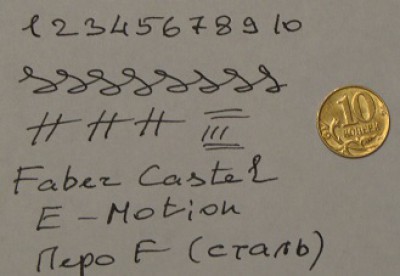 1 2 3 4 5 6 7 8 9 10
10
КОПЕЕК
Faber Castel
E-Motion
Перо F (сталь)